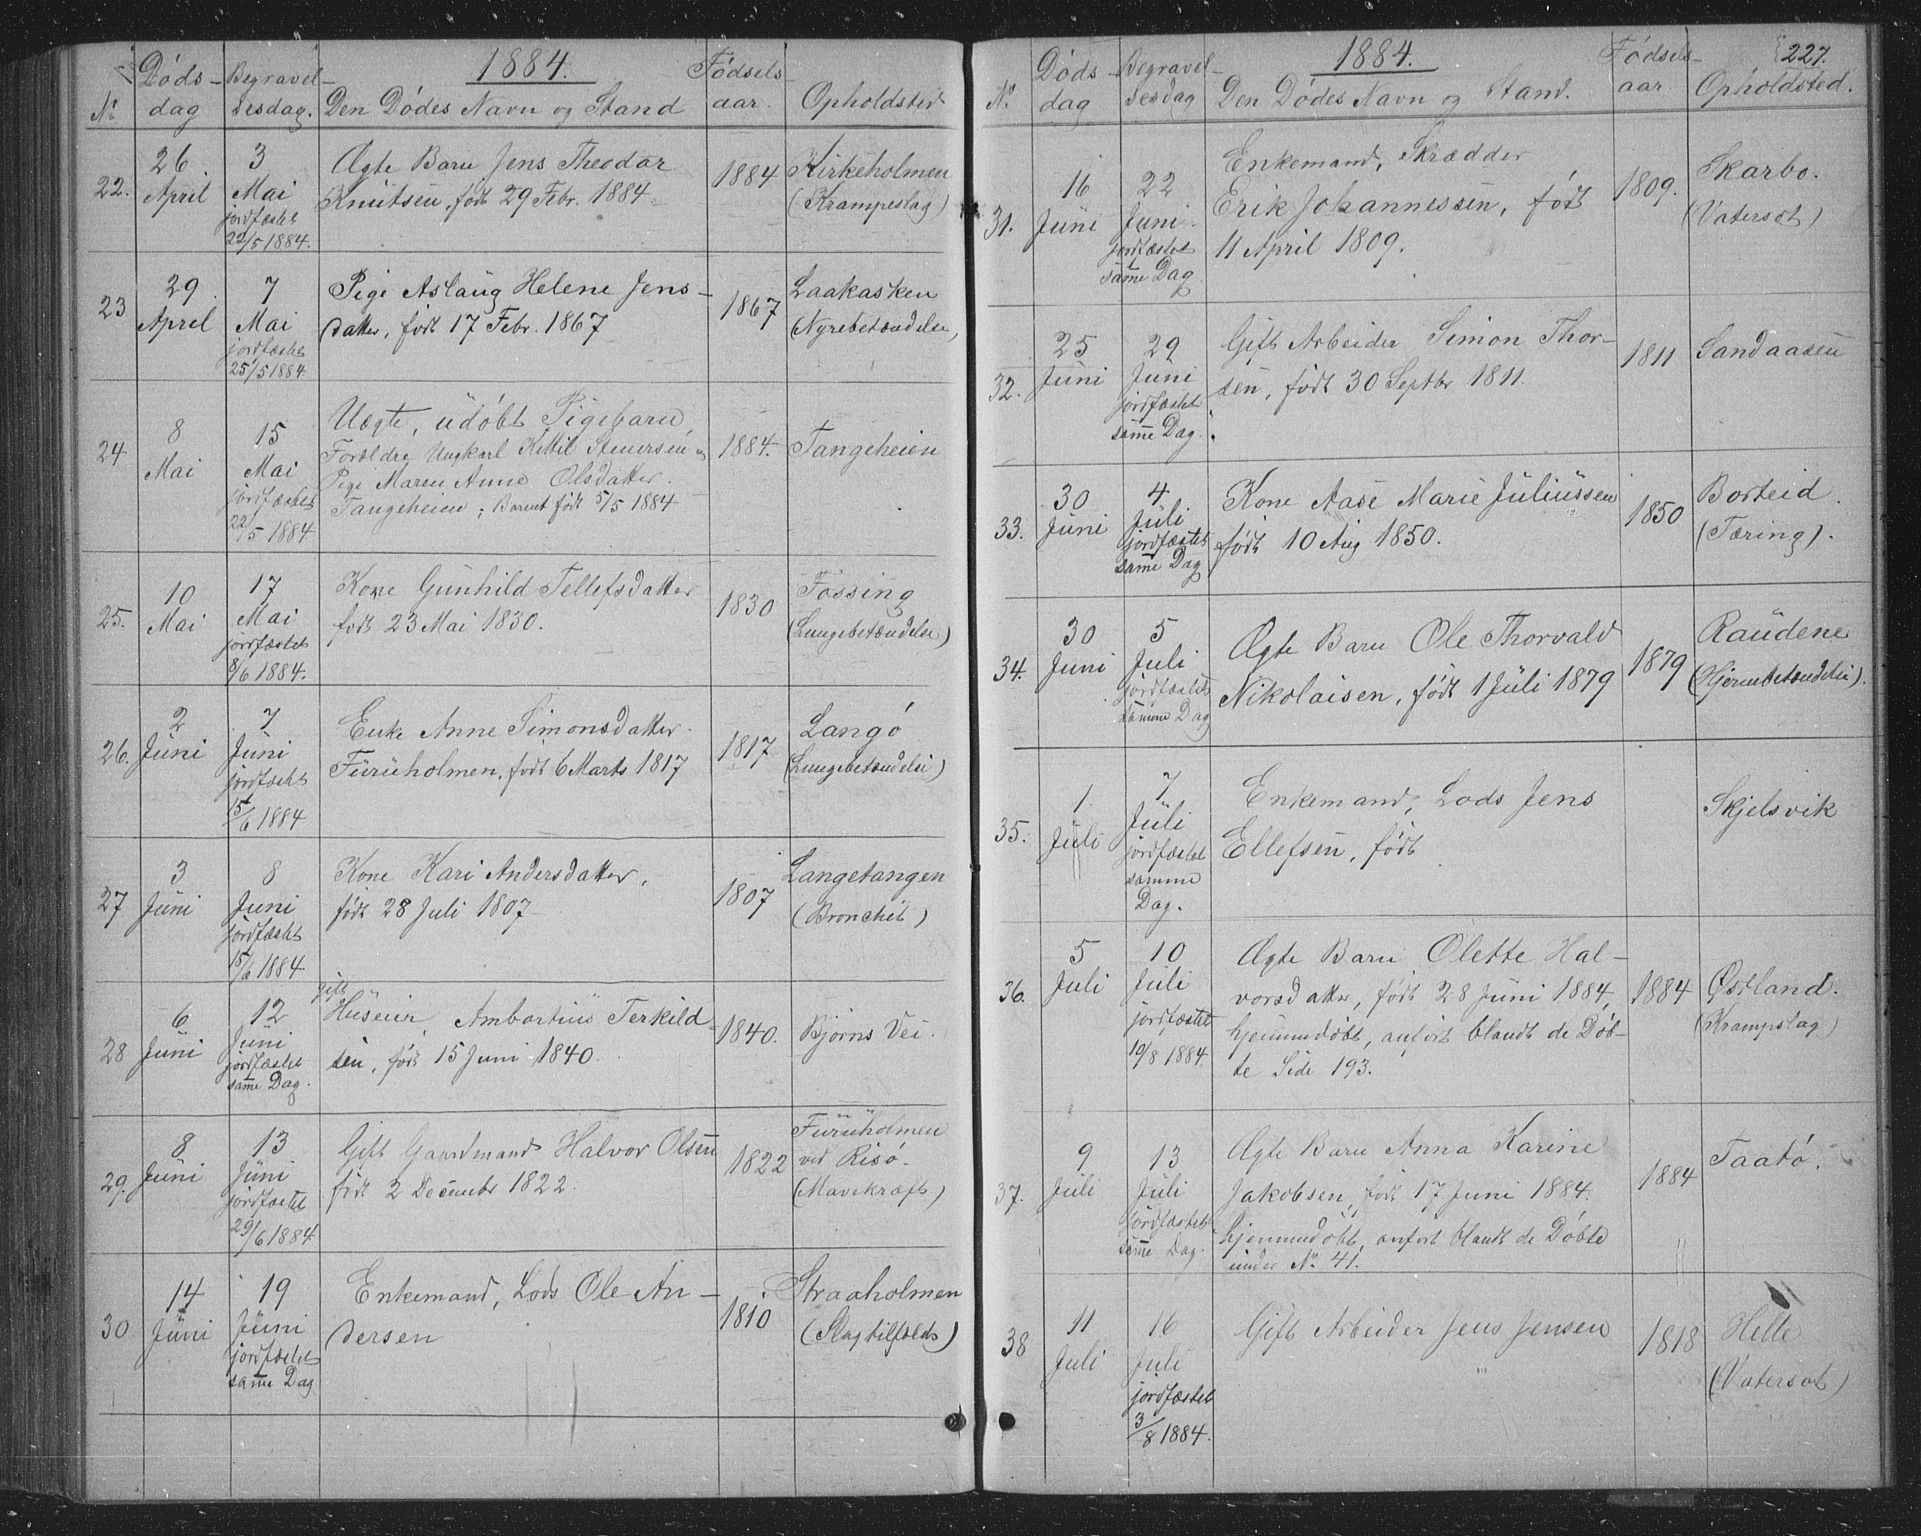 1884.
Nr Døds-dag Begravel-sesdag. Den Dødes Navn og Stand Fødsels-aar. Opholdsted
22. 26 April 3 Mai jordfæstet 22/5 1884.
Ægte Barn Jens Theodor
Knutsen, født 29 Febr. 1884.
1884
Kirkeholmen
(Krampeslag)
23 29 April 7 Mai jordfæstet 25/5 1884.
Pige Aslaug Helene Jens-
datter, født 17 Febr. 1867
1867
Laakasken
(Nyrebetændelse)
24 8 Mai 15 Mai jordfæstet 22/5 1884
Uægte, udøbt Pigebarn,
Forældre Ungkarl Kittil Steuersen og
Pige Maren Anne Olsdatter.
Tangeheien; Barnet født 5/5 1884
1884.
Tangeheien
25. 10 Mai 17 Mai jordfæstet 8/6 1884.
Kone Gunhild Tellefsdatter
født 23 Mai 1830.
1830
Fossing
(Lungebetændelse)
26. 2 Juni 7 Juni jordfæstet 15/6 1884
Enke Anne Simonsdatter.
Furuholmen, født 6 Marts 1817
1817
Langø
(Lungebetændelse)
27 3 Juni 8 Juni jordfæstet 15/6 1884
Kone Kari Andersdatter,
født 28 Juli 1807
1807
Langetangen
(Bronchit)
28 6 Juni 12 Juni jordfæstet samme Dag.
gift
Huseier, Ambortius Terkild-
sen, født 15 Juni 1840.
1840.
Bjørns Vei.
29. 8 Juni 13 Juni jordfæstet 29/6 1884
Gift Gaardmand Halvor Olsen
født 2 Decembr 1822.
1822
Furuholmen
ved Risø.
(Mavekræft)
30 14 Juni 19 Juni jordfæstet samme Dag
Enkemand, Lods Ole An-
dersen
1810
Straaholmen
(Slagtilfælde)
1884.
227.
Nr Døds-dag Begravel-sesdag Den Dødes Navn og Stand. Fødsels-aar. Opholdsted.
31. 16 Juni 22 Juni. jordfæstet samme Dag
Enkemand, Skrædder
Erik Johannessen, født
11 April 1809.
1809.
Skarbo.
(Vatersot)
32. 25 Juni 29 Juni jordfæstet samme Dag.
Gift Arbeider Simon Thor-
sen, født 30 Septbr 1811.
1811
Sandaasen
33. 30 Juni 4 Juli jordfæstet samme Dag
Kone Aase Marie Juliussen
født 10 Aug 1850.
1850
Borteid.
(Tæring).
34. 30 Juni 5 Juli jordfæstet samme Dag
Ægte Barn Ole Thorvald
Nikolaisen, født 1 Juli 1879
1879
Raudene
(Hjernebetændelse).
35. 1 Juli 7 Juli jordfæstet samme Dag.
Enkemand, Lods Jens
Ellefsen, født
Skjelsvik
36. 5 Juli 10 Juli jordfæstet 10/8 1884.
Ægte Barn Olette Hal-
vorsdatter, født 28 Juni 1884,
hjemmedøbt, anført blandt de Døb-
te Side 193.
1884
Østland.
(Krampslag)
37. 9 Juli 13 Juli jordfæstet samme Dag.
Ægte Barn Anna Karine
Jakobsen, født 17 Juni 1884.
hjemmedøbt, anført blandt de Døbte
under No 41.
1884
Taatø.
38 11 Juli 16 Juli jordfæstet 3/8 1884.
Gift Arbeider Jens Jensen
1818
Helle
(Vatersot)